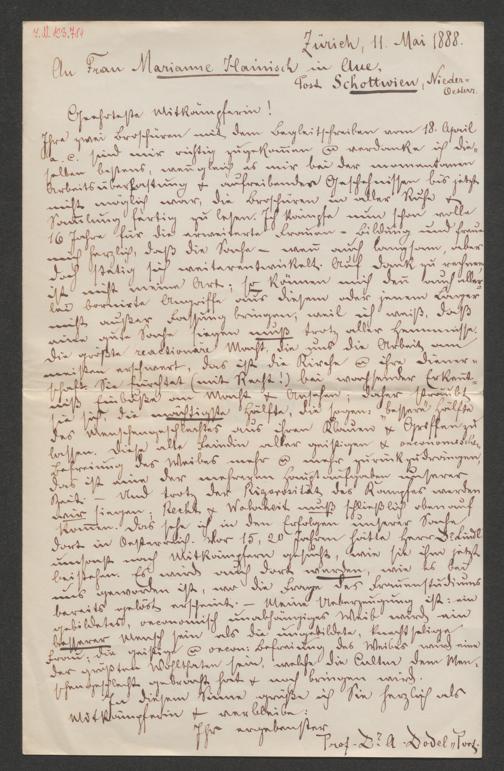 I.N. 123.751
Zürich, 11. Mai 1888.
An Frau Marianne Hainisch in Aue,
Post Schottwien, Nieder-
Oesterr.
Geehrteste Mitkämpferin!
Ihre zwei Broschüren mit dem Begleitschreiben vom 18. April
a. c. sind mir richtig zugekommen & verdanke ich die-
selben bestens, wenngleich es mir bei der momentanen
Arbeitsüberhäufung & aufreibenden Geschehnissen bis jetzt
nicht möglich war, die Broschüren in aller Ruhe &
Sammlung fertig zu lesen. Ich kämpfe nun schon volle
16 Jahre für die erweiterte Frauen-Bildung und freue
mich herzlich, daß die Sache – wenn auch langsam, aber
doch stetig sich weiterentwickelt. Auf Dank zu rechnen,
ist nicht meine Art; so können mich denn auch aller-
lei bornierte Angriffe aus diesem oder jenem Lager
nicht außer Fassung bringen, weil ich weiß, daß
eine gute Sache siegen muß trotz aller Hemmnisse.
Die größte reactionäre Macht, die uns die Arbeit am
meisten erschwert, das ist die Kirche & ihre Diener-
schaft. Sie fürchtet (mit Recht!) bei wachsender Erkennt-
niß Einbuße an Macht & Ansehen; daher sträubt
sie sich, die wichtigste Hälfte, die sogen. bessere Hälfte
des Menschengeschlechtes aus ihren Klauen & Griffen zu
lassen. Diese alte Feindin aller geistigen & oeconomischen
Befreiung des Weibes mehr & mehr zurückzudrängen,
das ist eine der mehreren Hauptaufgaben unserer
Zeit. – Und trotz der Rigorosität des Kampfes werden
wir siegen; Recht & Wahrheit muß schließlich obenauf
kommen. Das sehe ich in den Erfolgen unserer Sache
dort in Oesterreich. Vor 15, 20 Jahren hätte Herr
umsonst nach Mitkämpfern gesucht, wie sie ihm jetzt
beistehen. Es wird auch dort werden, wie es bei
uns geworden ist, wo die Frage des Frauenstudiums
bereits gelöst erscheint. – Meine Ueberzeugung ist: ein
gebildetes, oeconomisch unabhängiges Weib wird ein
besserer Mensch sein als die ungebildete, knechtselige
Frau; die geistige & oecon. Befreiung des Weibes wird eine
der größten Wohlthaten sein, welche die Cultur dem Men-
schengeschlecht gebracht hat & noch bringen wird.
In diesem Sinne grüße ich Sie herzlich als
Mitkämpferin & verbleibe:
Ihr ergebenster
Prof. Dr. A. Dodel-Port.